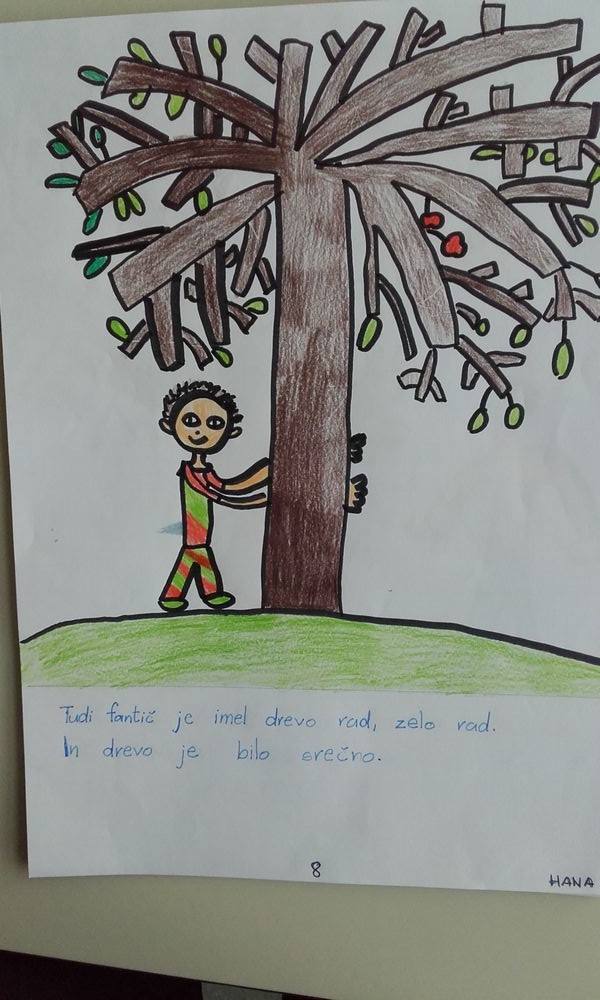 Tudi fantič je imel drevo rad, zelo rad.
In drevo je bilo srečno.
8
HANA